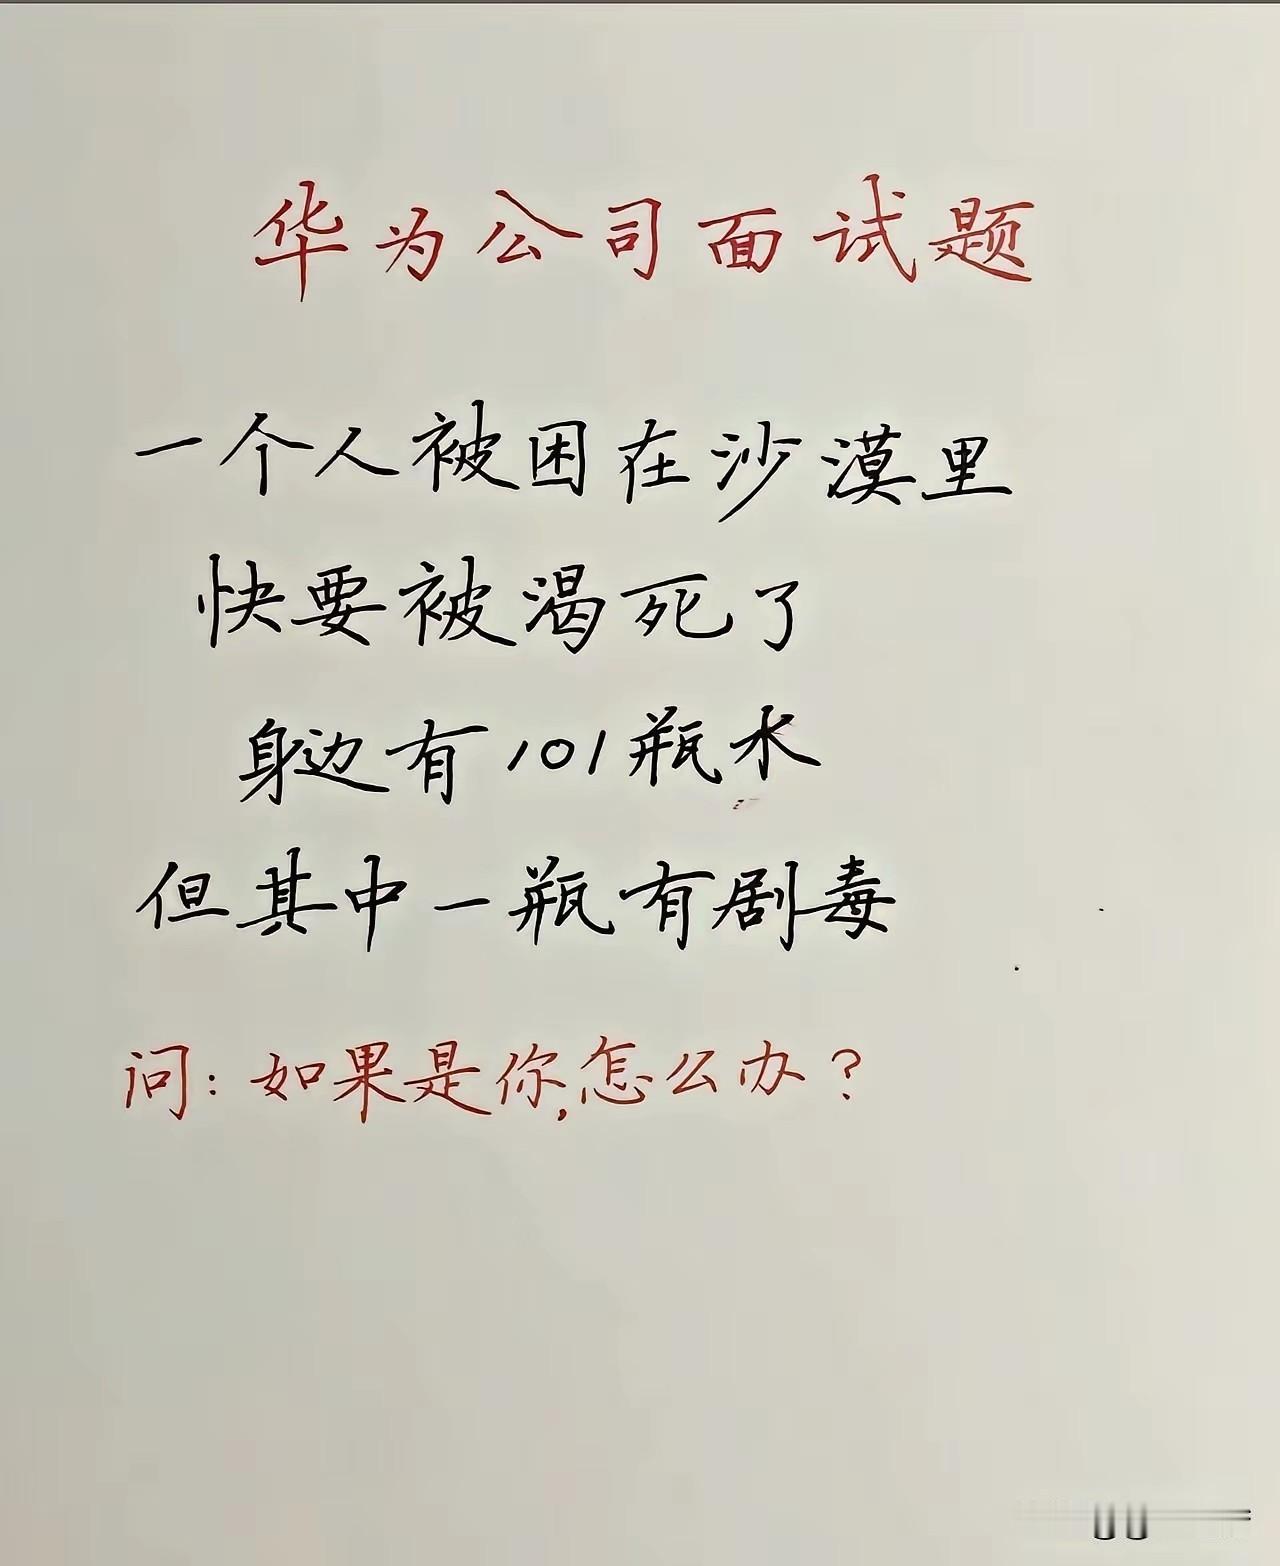 华为公司面试题
一个人被困在沙漠里
快要被渴死了
身边有101瓶水
但其中一瓶有剧毒
问:如果是你,怎么办?